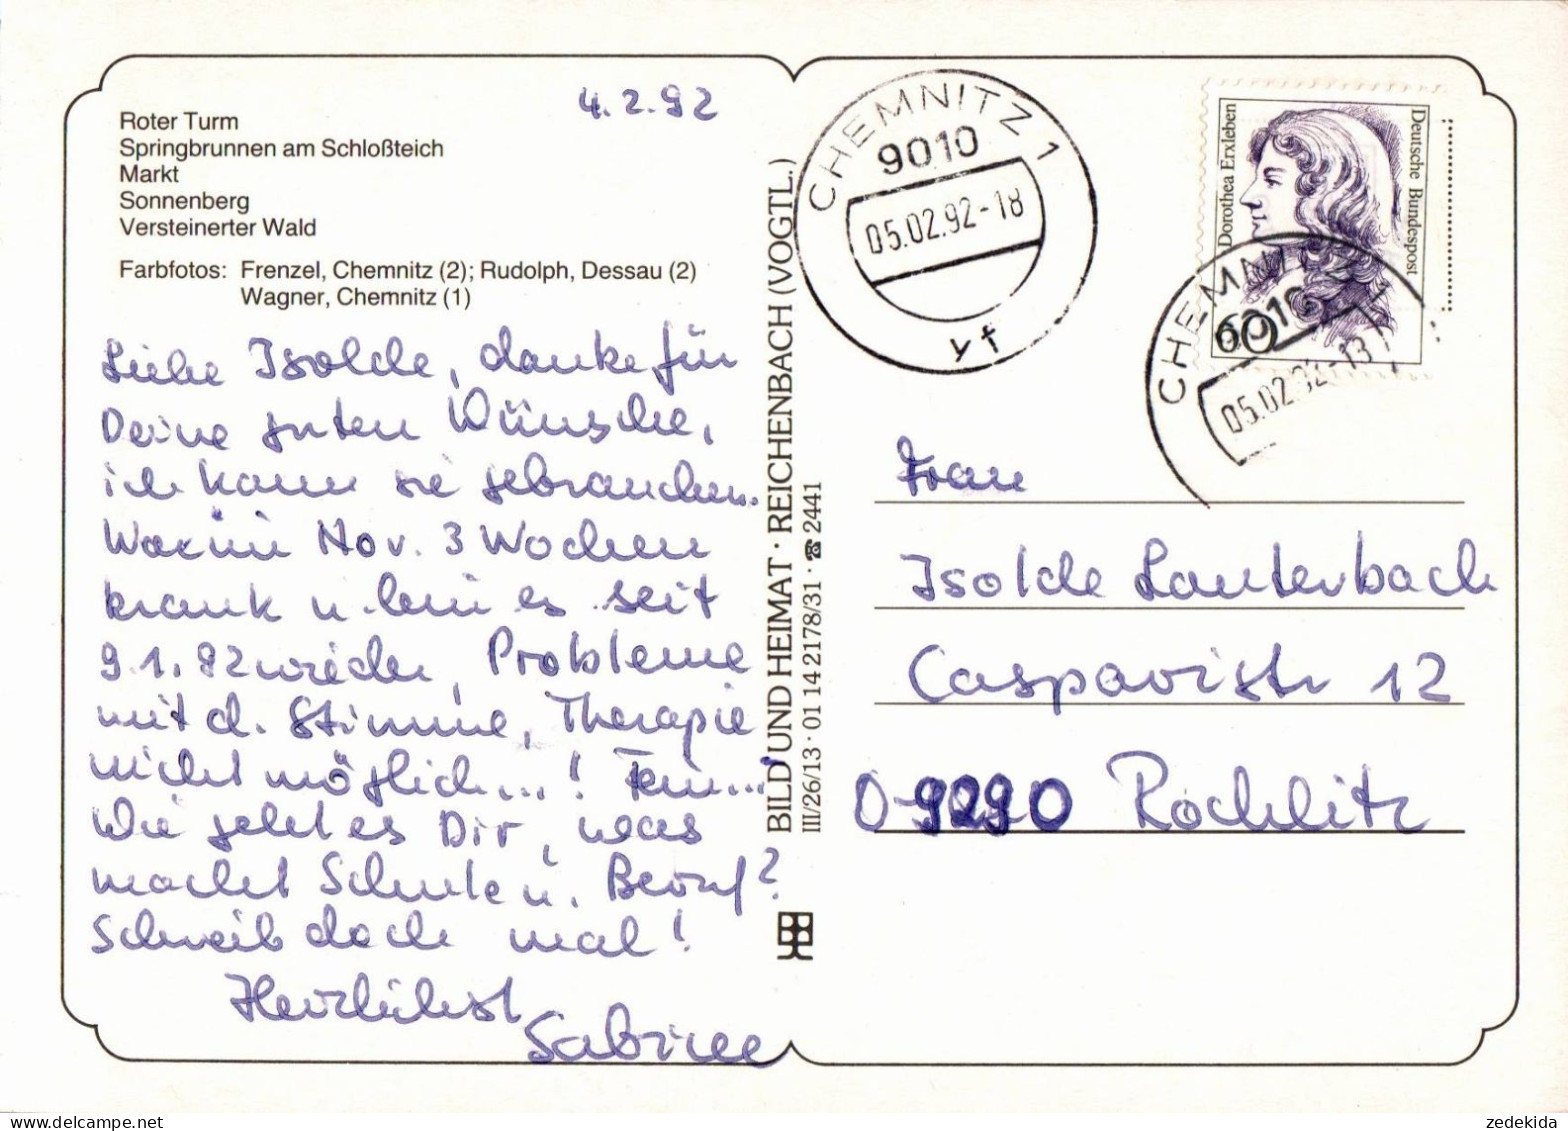 4.2.92
Roter Turm
Springbrunnen am Schloßteich
Markt
Sonnenberg
Versteinerter Wald
Farbfotos: Frenzel, Chemnitz (2); Rudolph, Dessau (2)
Wagner, Chemnitz (1)
Liebe Isolde, danke für
Deine guten Wünsche,
ich kann sie gebrauchen.
War im Nov. 3 Wochen
krank u. bin es seit
9.1.92 wieder, Probleme
mit d. Stimme, Therapie
nicht möglich...!
Wie geht es Dir, was
macht Schule u. Beruf?
Schreib doch mal!
Herzlichst
Sabine
BILD UND HEIMAT · REICHENBACH (VOGTL.)
III/26/13 · 01 14 2178/31 · ☎ 2441
CHEMNITZ 1
9010
05.02.92-18
yt
Dorothea Erxleben
Deutsche Bundespost
60
CHEMNITZ 1
9010
05.02.92-18
Frau
Isolde Lauterbach
Casparistr 12
O-9290 Rochlitz
zedekida